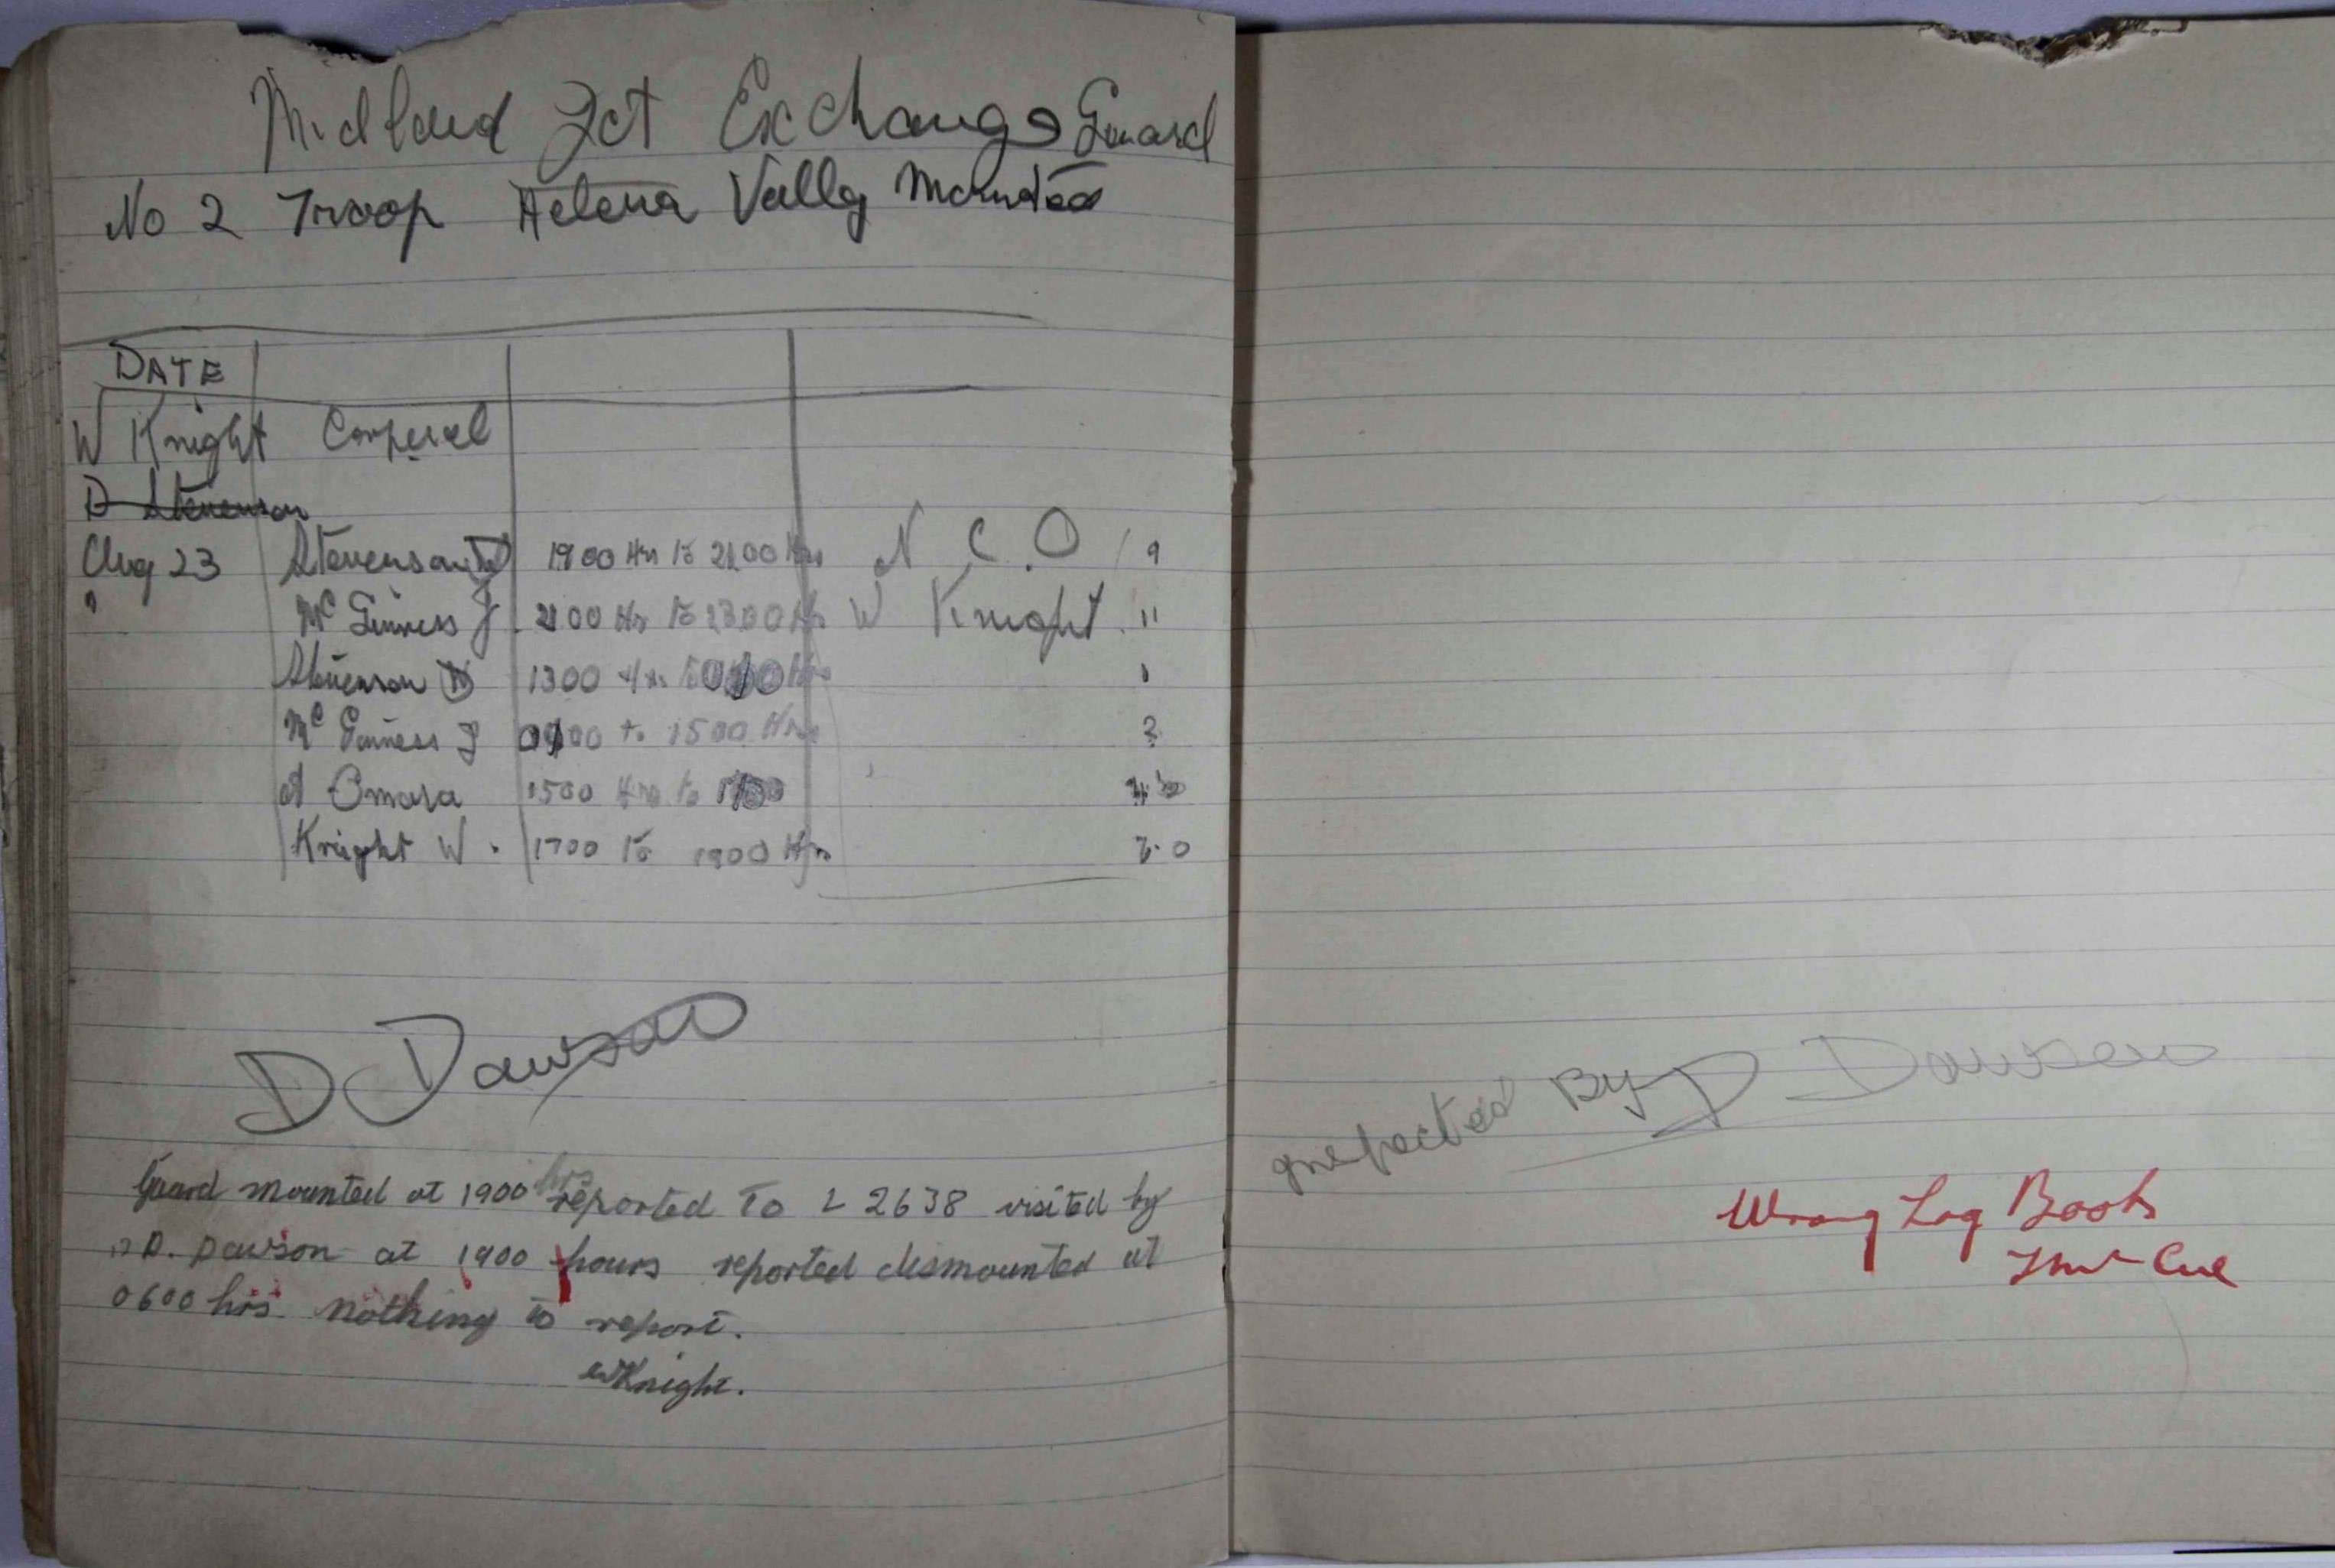 Midland Jct Exchange Guard
No 2 Troop Helena Vally Mounted
DATE
W Knight Corperal
D Stevenson
Aug 23 Stevenson D 1900 Hrs to 2100 Hrs N.C.O 9
" Mc Ginness J. 2100 Hrs to 2300 Hrs W Knight. 11
Stevenson D 1300 Hrs to Hrs 1
Mc Ginness J 0100 to 1500 Hrs 3
A Omara 1500 Hrs to
Knight W. 1700 to 1900 Hrs
D Dawson
Guard mounted at 1900 hrs reported to L 2638 visited by
D. Dawson at 1900 hours reported dismounted at
0600 hrs. nothing to report.
W Knight.
Inspected By D Dawson
Wrong Log Book